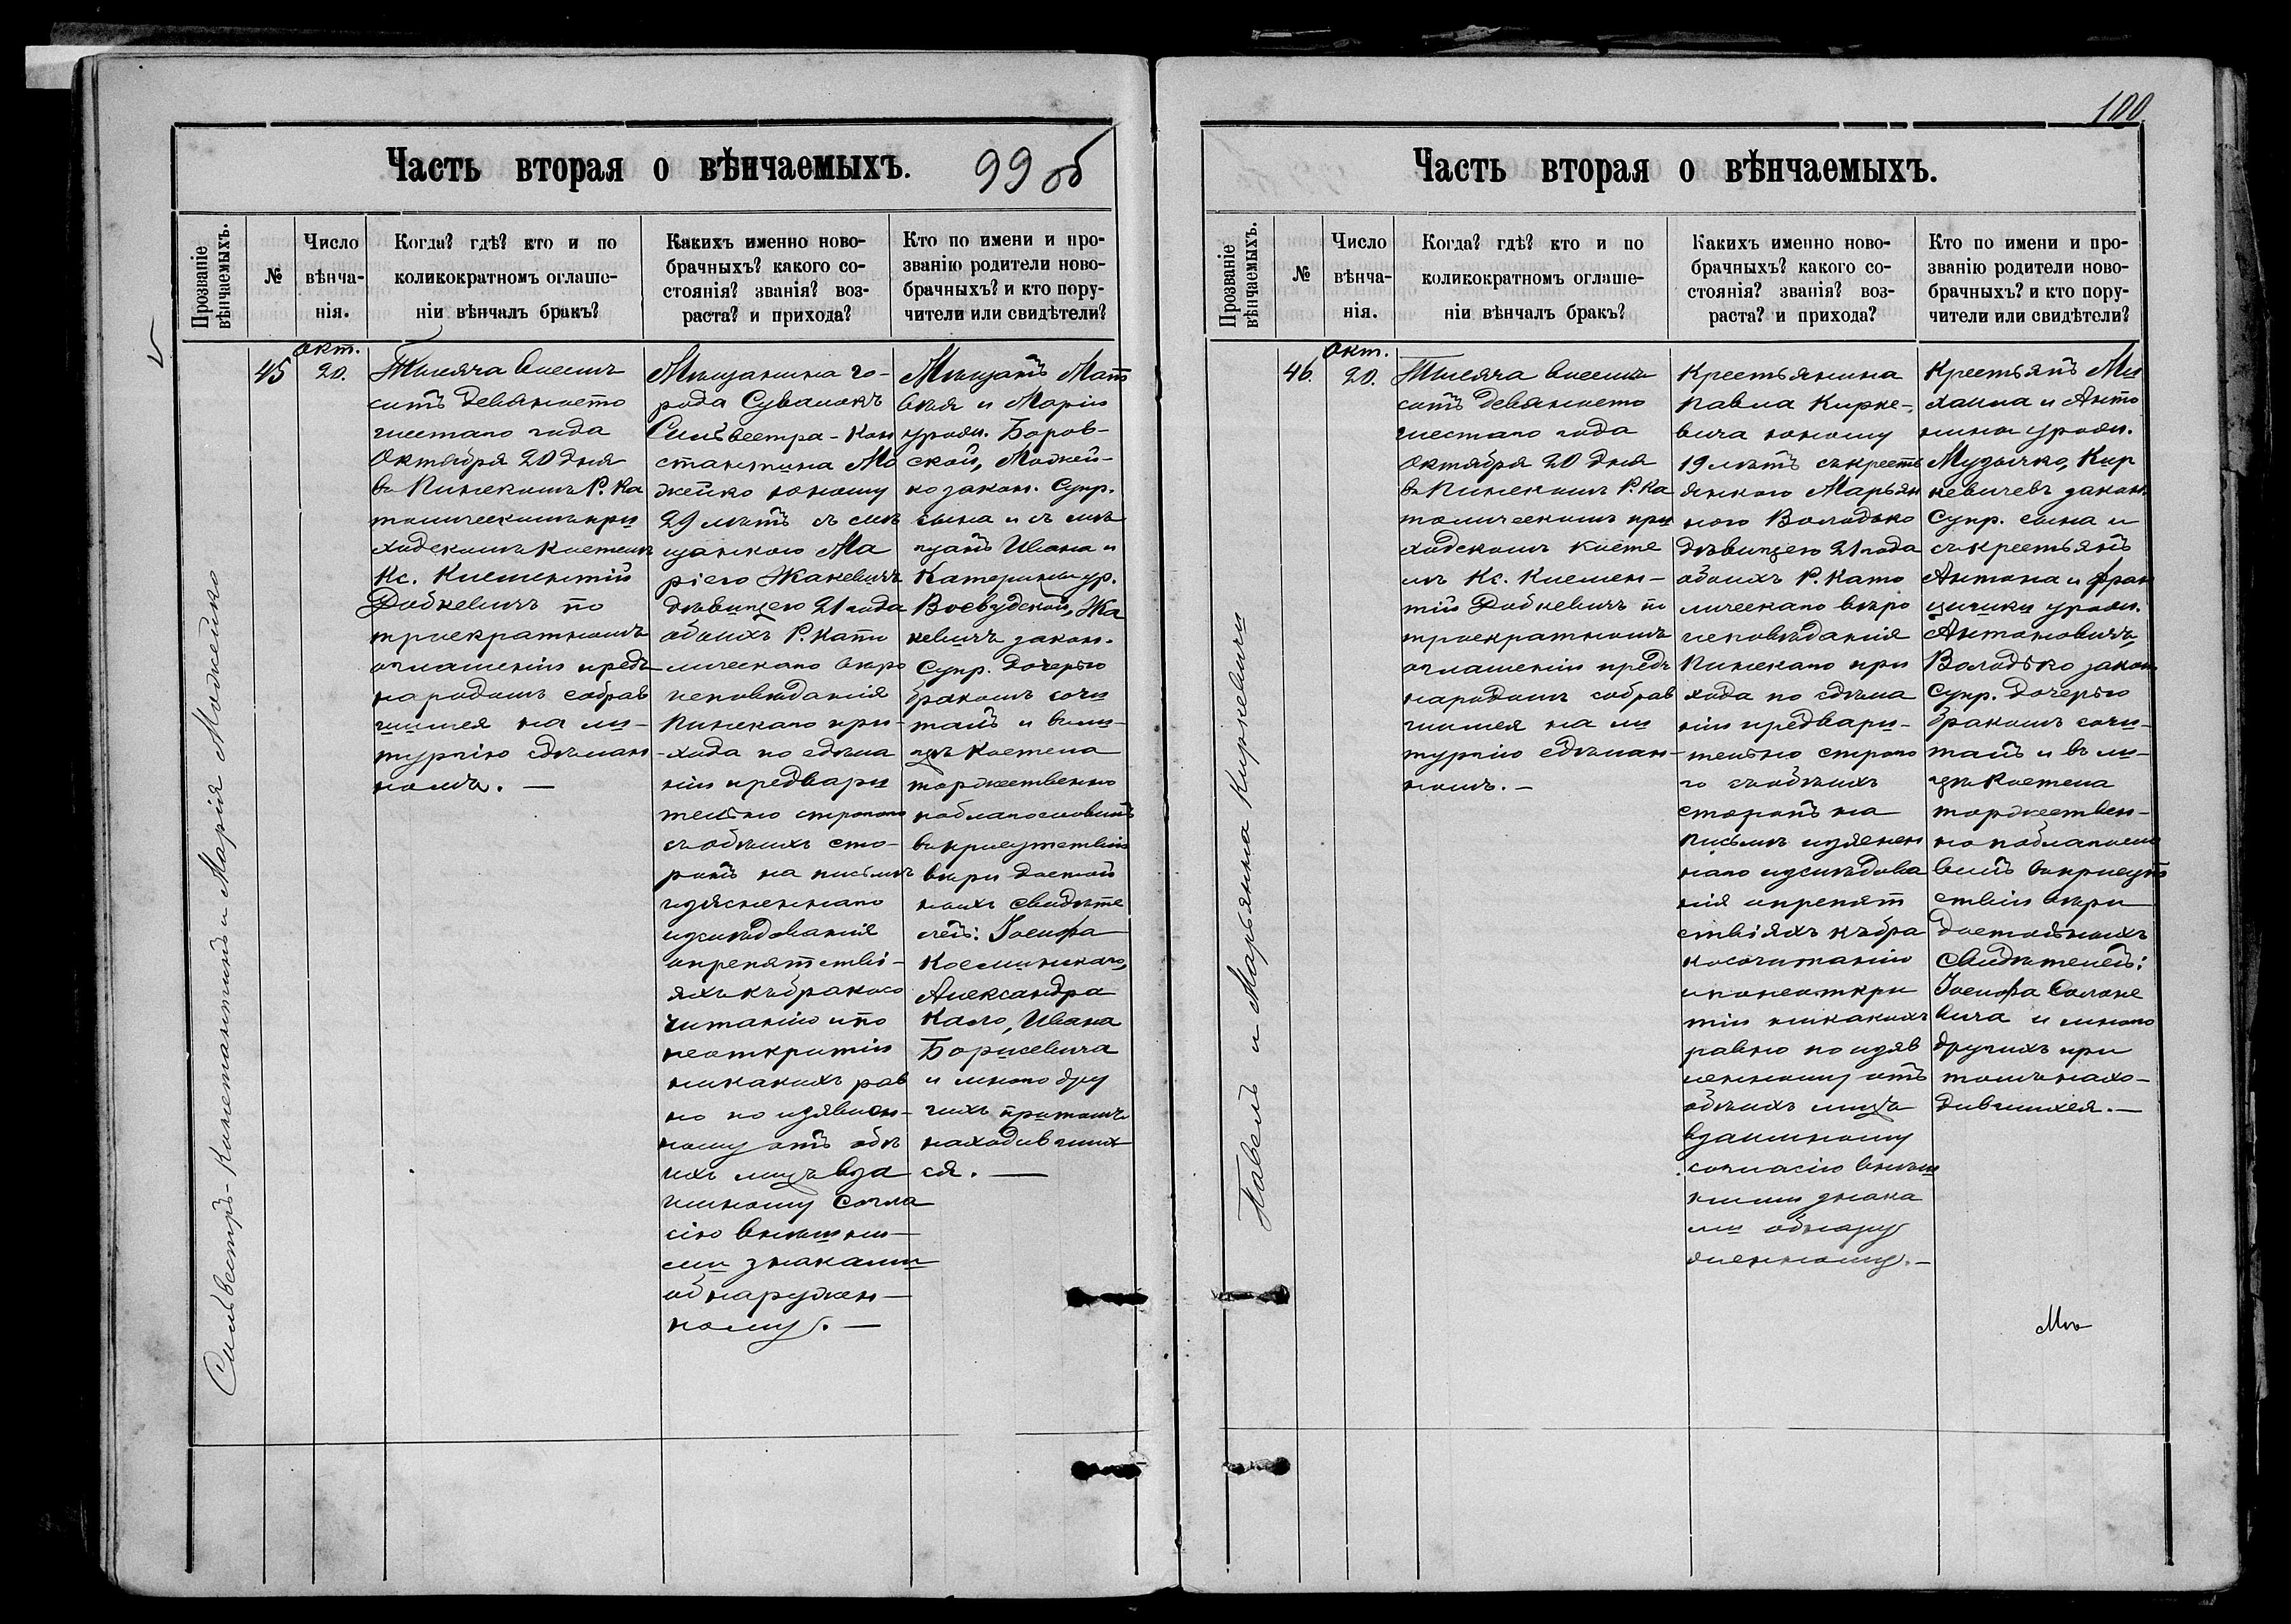 Часть вторая о вѣнчаемыхъ.
99 об
Прозваніе вѣнчаемыхъ.
№
Число вѣнча-
нія.
Когда? гдѣ? кто и по
коликократномъ оглаше-
ніи вѣнчалъ бракъ?
Какихъ именно ново-
брачныхъ? какого со-
стоянія? званія? воз-
раста? и прихода?
Кто по имени и про-
званію родители ново-
брачныхъ? и кто пору-
чители или свидѣтели?
Сильвестръ-Константинъ и Марія Можейко
45
Окт.
20.
Тысяча восемь
сотъ девяносто
шестаго года
Октября 20 дня
въ Пинскомъ Р. Ка
толическомъ при
ходскомъ костелѣ
Кс. Климентій
Добкевичъ по
троекратномъ
оглашеніи предъ
народомъ собрав
шимся на ли-
тургію сдѣлан
номъ. —
Мѣщанина го-
рода Сувалокъ
Сильвестра-Кон
стантина Мо
жейко юношу
29 лѣтъ съ мѣ
щанкою Ма
ріею Жакевичъ
дѣвицею 21 года
обоихъ Р. Като
лическаго вѣро
исповѣданія
Пинскаго при-
хода по сдѣла
ніи предвари
тельно строгаго
съ обѣихъ сто-
ронъ на письмѣ
изясненнаго
изслѣдованія
о препятстві-
яхъ къ бракосо
читанію и по
неоткрытіи
никакихъ рав
но по изявлен-
ному отъ обѣ
ихъ лицъ вза
имному согла
сію внѣшни-
ми знаками
обнаружен-
ному. —
Мѣщанъ Мат
вѣя и Маріи
урожд. Боров-
ской, Можей-
ко закон. Супр.
сына и съ мѣ
щанъ Ивана и
Катерины ур.
Воевудской, Жа
кевичъ закон.
Супр. дочерью
бракомъ соче
талъ и въ ли-
цѣ костела
торжественно
поблагословилъ
въ присутствіи
вѣри достой
ныхъ свидѣте
лей: Іосифа
Косминскаго,
Александра
Кало, Ивана
Борисевича
и много дру
гихъ при томъ
находивших
ся. —
100
Часть вторая о вѣнчаемыхъ.
Прозваніе вѣнчаемыхъ.
№
Число вѣнча-
нія.
Когда? гдѣ? кто и по
коликократномъ оглаше-
ніи вѣнчалъ бракъ?
Какихъ именно ново-
брачныхъ? какого со-
стоянія? званія? воз-
раста? и прихода?
Кто по имени и про-
званію родители ново-
брачныхъ? и кто пору-
чители или свидѣтели?
Павелъ и Марьянна Киркевичи
46.
Окт.
20.
Тысяча восемь
сотъ девяносто
шестаго года
Октября 20 дня
въ Пинскомъ Р. Ка
толическомъ при
ходскомъ косте
лѣ Кс. Климен-
тій Добкевичъ по
троекратномъ
оглашеніи предъ
народомъ собрав
шимся на ли
тургію сдѣлан-
номъ. —
Крестьянина
Павла Кирке-
вича юношу
19 лѣтъ съ крестъ
янкою Марьян
ною Володько
дѣвицею 21 года
обоихъ Р. Като
лическаго вѣро
исповѣданія
Пинскаго при
хода по сдѣла
ніи предвари-
тельно строга
го съ обѣихъ
сторонъ на
письмѣ изяснен
наго изслѣдова
нія о препят
ствіяхъ къ бра
косочитанію
и по неоткры
тіи никакихъ
равно по изяв
ленному отъ
обѣихъ лицъ
взаимному
согласію внѣш
ними знака
ми обнару
женному. —
Крестьянъ Ми
хаила и Анто
нины урожд.
Музычко, Кир
кевичевъ закон.
Супр. сына и
съ крестьянъ
Антона и Фран
цишки урожд.
Антоновичъ,
Володько закон
Супр. дочерью
бракомъ соче-
талъ и въ ли-
цѣ костела
торжествен-
но поблагосло
вилъ въ присут
ствіи вѣри
достойныхъ
свидѣтелей:
Іосифа Солоне
вича и много
другихъ при
томъ нахо-
дившихся. —